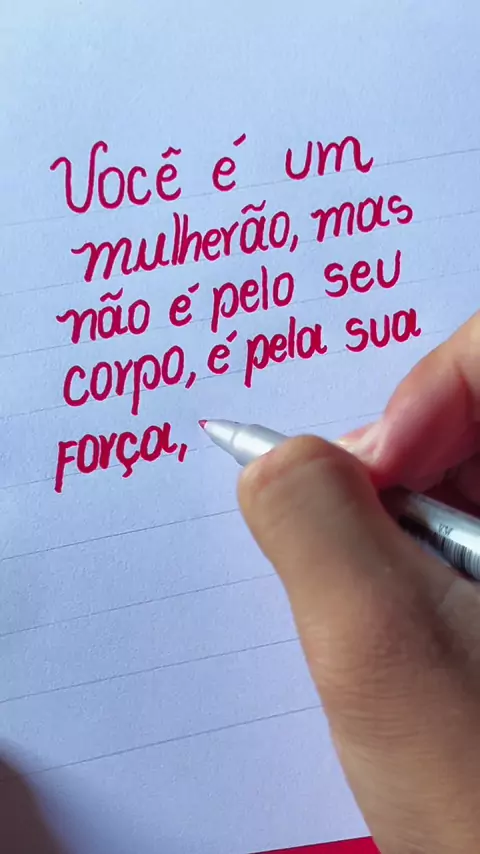 Você é um
mulherão, mas
não é pelo seu
corpo, é pela sua
força,